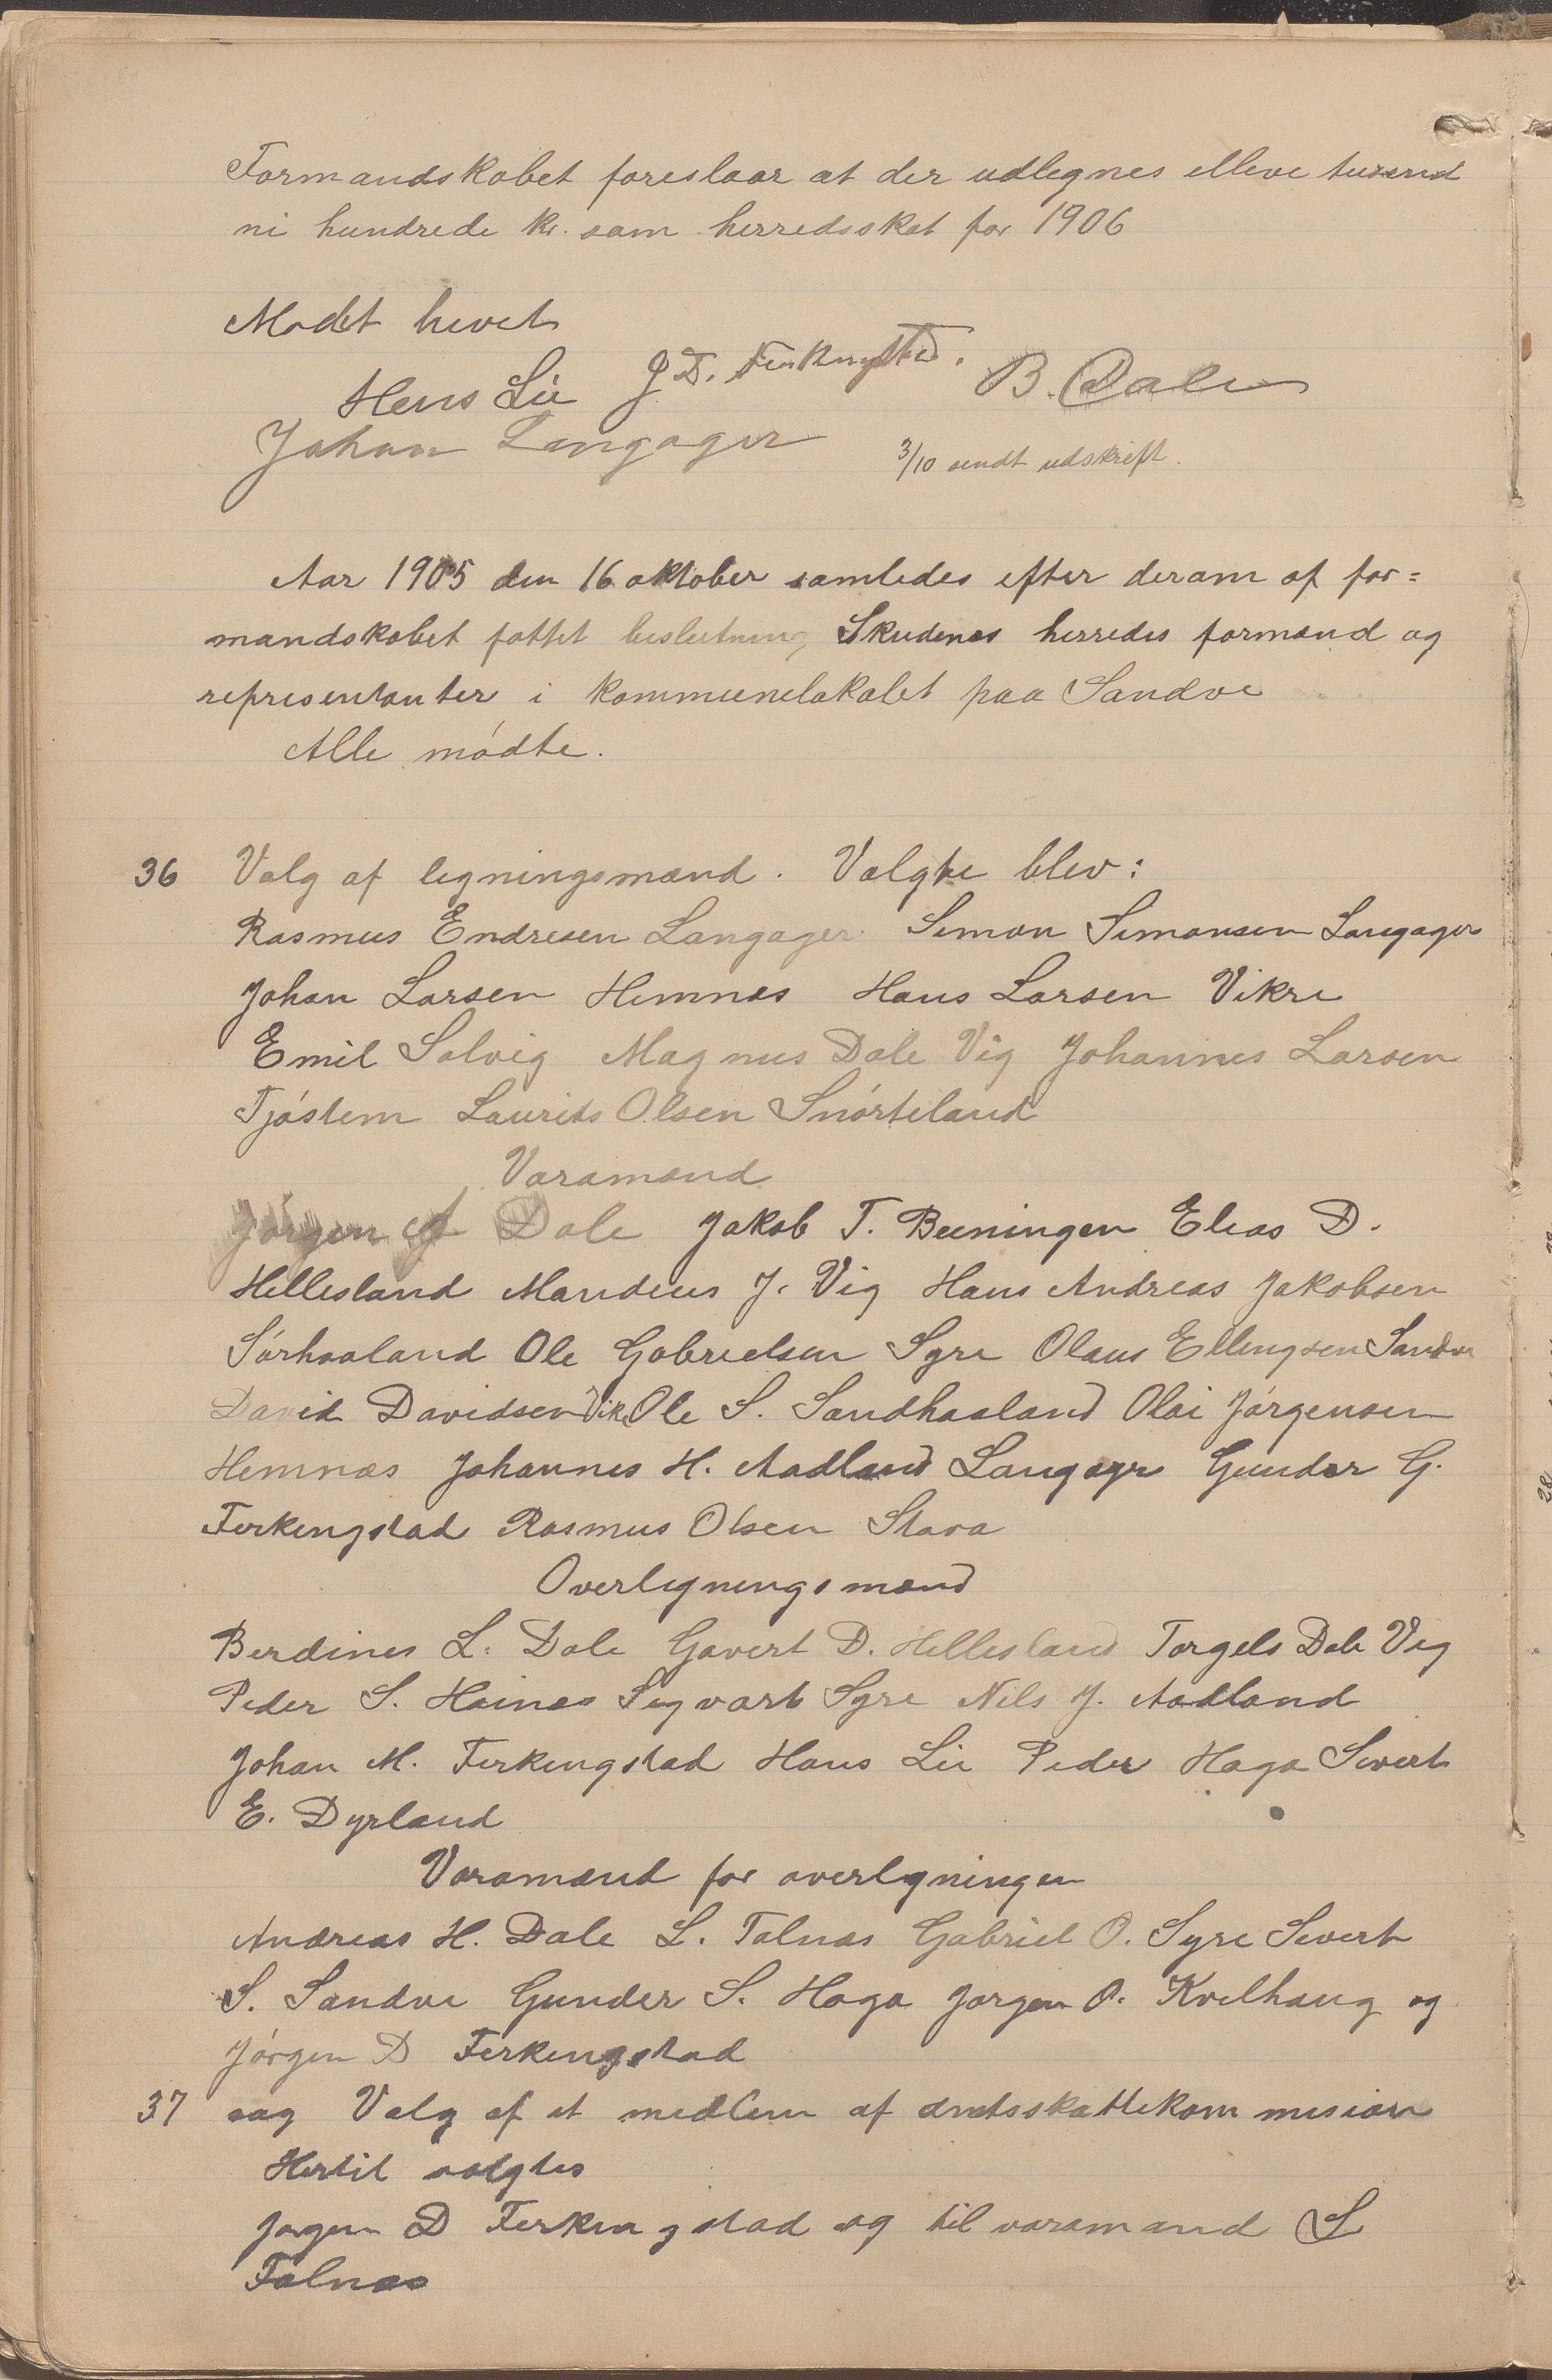 Formandskabet foreslaar at der udlegnes elleve tusend
ni hundrede kr. som herredsskat for 1906
Mødet hevet
Hans Lie J D. Ferkingstad. B. Dale
Johan Langager 3/10 sendt udskrift.
Aar 1905 den 16 oktober samledes efter derom af for=
mandskabet fattet beslutning Skudenes herredes formænd og
representanter i kommunelokalet paa Sandve
Alle mødte.
36 Valg af ligningsmænd. Valgte blev:
Rasmus Endresen Langager Simon Simonsen Langager
Johan Larsen Hemnes Hans Larsen Vikre
Emil Solvig Magnus Dale Vig Johannes Larsen
Tjøstem Laurits Olsen Snørteland
Varamænd
Jørgen J Dale Jakob T. Beiningen Elias D.
Hillesland Mandius J. Vig Hans Andreas Jakobsen
Sørhaaland Ole Gabrielsen Syre Olaus Ellingsen Sandve
David Davidsen Vik Ole S. Sandhaaland Olai Jørgensen
Hemnæs Johannes H. Aadland Langager Gunder G.
Ferkingstad Rasmus Olsen Stava
Overligningsmænd
Berdines L. Dale Govert D. Hillesland Torgels Dale Vig
Peder S. Hoines Sigvart Syre Nils J. Aadland
Johan M. Ferkingstad Hans Lie Peder Haga Sivert
E. Dyrland
Varamænd for overligningen
Andreas H. Dale L. Falnæs Gabriel O. Syre Sivert
S. Sandve Gunder S. Haga Jørgen O. Kvilhaug og
Jørgen D Ferkingstad
37 sag Valg af et medlem af amtsskattekommision
Hertil valgtes
Jørgen D Ferkingstad og til varamand L
Falnæs